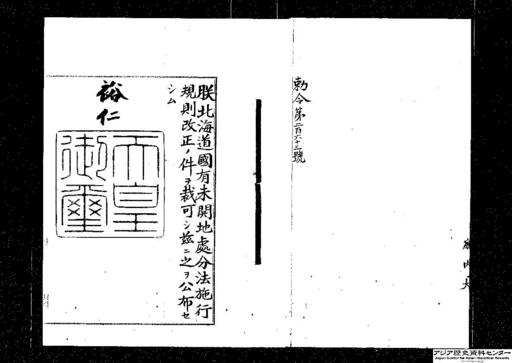 勅令第二百六十三號
朕北海道國有未開地處分法施行
規則改正ノ件ヲ裁可シ茲ニ之ヲ公布セ
シム
裕仁
天皇
御璽
内
アジア歴史資料センター
Japan Center for Asian Historical Records